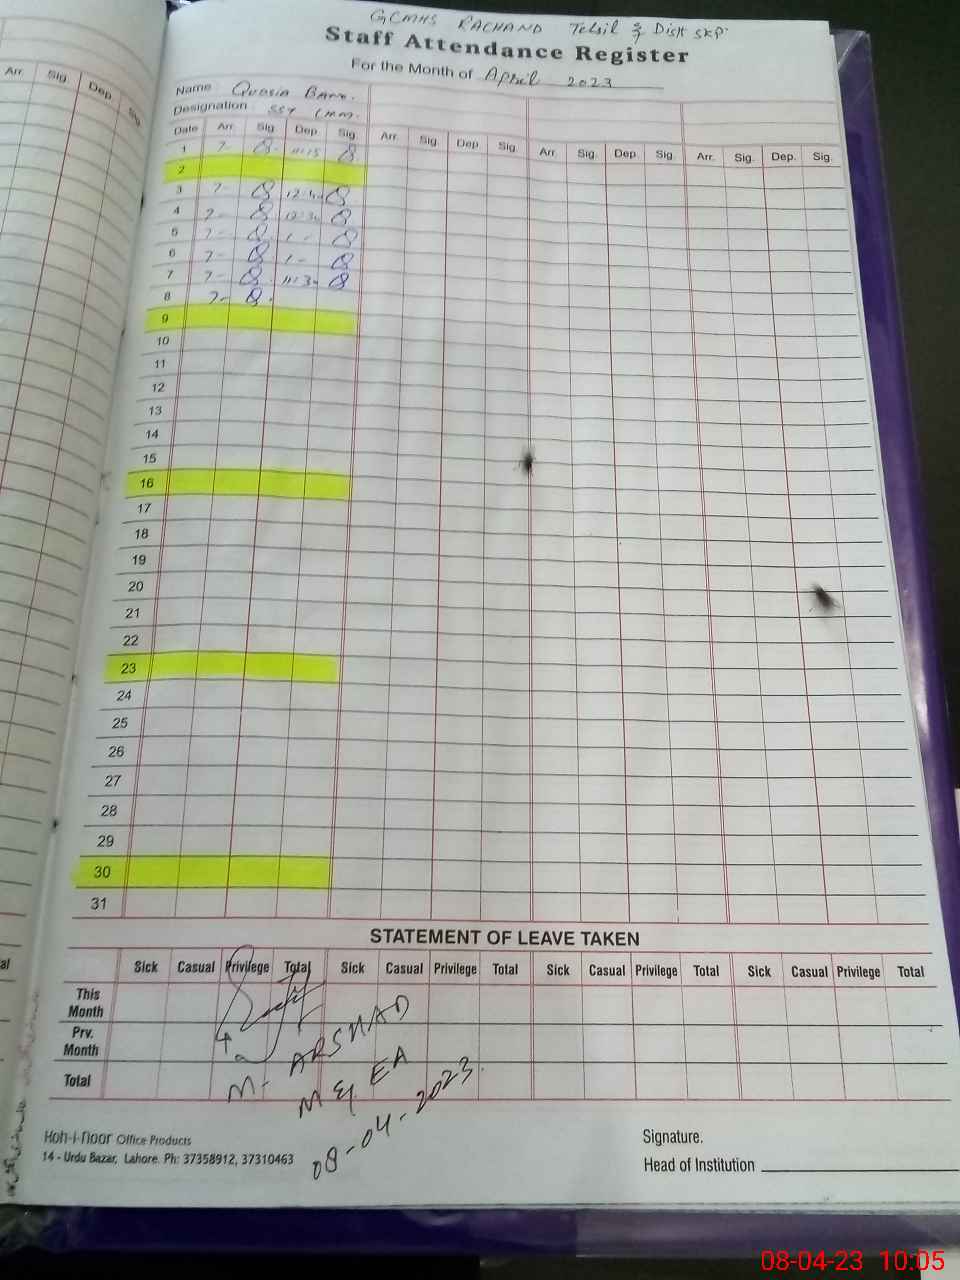 GCMHS RACHAND Tehsil & Distt SKP.
Staff Attendance Register
For the Month of April 2023
Name
Designation SST
Date Arr. Sig. Dep. Sig. Arr. Sig. Dep. Sig. Arr. Sig. Dep. Sig. Arr. Sig. Dep. Sig.
1 7- 11:15
2
3 7-
4 7- 12:30
5 7- 1-
6 7- 1-
7 7- 11:30
8 7-
9
10
11
12
13
14
15
16
17
18
19
20
21
22
23
24
25
26
27
28
29
30
31
STATEMENT OF LEAVE TAKEN
Sick Casual Privilege Total Sick Casual Privilege Total Sick Casual Privilege Total Sick Casual Privilege Total
This Month
Prv. Month
Total
M. ARSHAD
M & EA
08-04-2023
Koh-i-noor Office Products
14 - Urdu Bazar, Lahore. Ph: 37358912, 37310463
Signature.
Head of Institution
Arr. Sig. Dep. Sig.
al
08-04-23 10:05